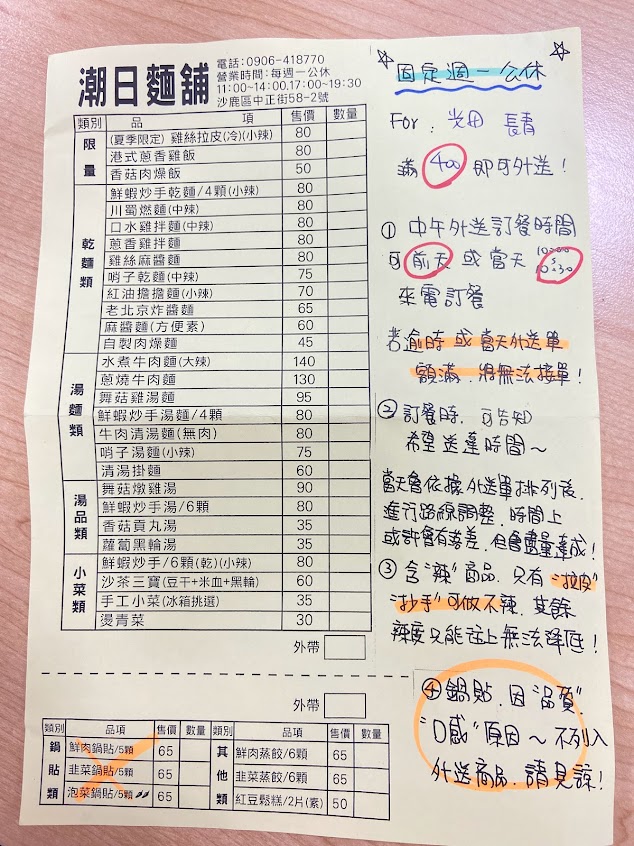 潮日麵舖
電話:0906-418770
營業時間:每週一公休
11:00~14:00,17:00~19:30
沙鹿區中正街58-2號
類別 品 項 售價 數量
限量
(夏季限定) 雞絲拉皮(冷)(小辣) 80
港式蔥香雞飯 80
香菇肉燥飯 50
乾麵類
鮮蝦炒手乾麵/4顆(小辣) 80
川蜀燃麵(中辣) 80
口水雞拌麵(中辣) 80
蔥香雞拌麵 80
雞絲麻醬麵 80
哨子乾麵(中辣) 75
紅油擔擔麵(小辣) 70
老北京炸醬麵 65
麻醬麵(方便素) 60
自製肉燥麵 45
湯麵類
水煮牛肉麵(大辣) 140
蔥燒牛肉麵 130
舞菇雞湯麵 95
鮮蝦炒手湯麵/4顆 80
牛肉清湯麵(無肉) 80
哨子湯麵(小辣) 75
清湯掛麵 60
湯品類
舞菇燉雞湯 90
鮮蝦炒手湯/6顆 80
香菇貢丸湯 35
蘿蔔黑輪湯 35
小菜類
鮮蝦炒手/6顆(乾)(小辣) 80
沙茶三寶(豆干+米血+黑輪) 60
手工小菜(冰箱挑選) 35
燙青菜 30
外帶
外帶
類別 品項 售價 數量
鍋貼類
鮮肉鍋貼/5顆 65
韭菜鍋貼/5顆 65
泡菜鍋貼/5顆 65
類別 品項 售價 數量
其他類
鮮肉蒸餃/6顆 65
韭菜蒸餃/6顆 65
紅豆鬆糕/2片(素) 50
固定週一公休
For. 光田 長青
滿 400 即可外送!
① 中午外送訂餐時間
可 前天 或 當天 10:00 10:30
來電訂餐
若逾時或當天外送單
額滿.將無法接單!
② 訂餐時.可告知
希望送達時間~
當天會依據外送單排列後.
進行路線調整.時間上
或許會有誤差.但會盡量達成!
③ 含"辣"商品.只有"拉皮"
"抄手"可做不辣.其餘
辣度只能往上無法降低!
④ 鍋貼.因"品質"
"口感"原因~不列入
外送商品.請見諒!